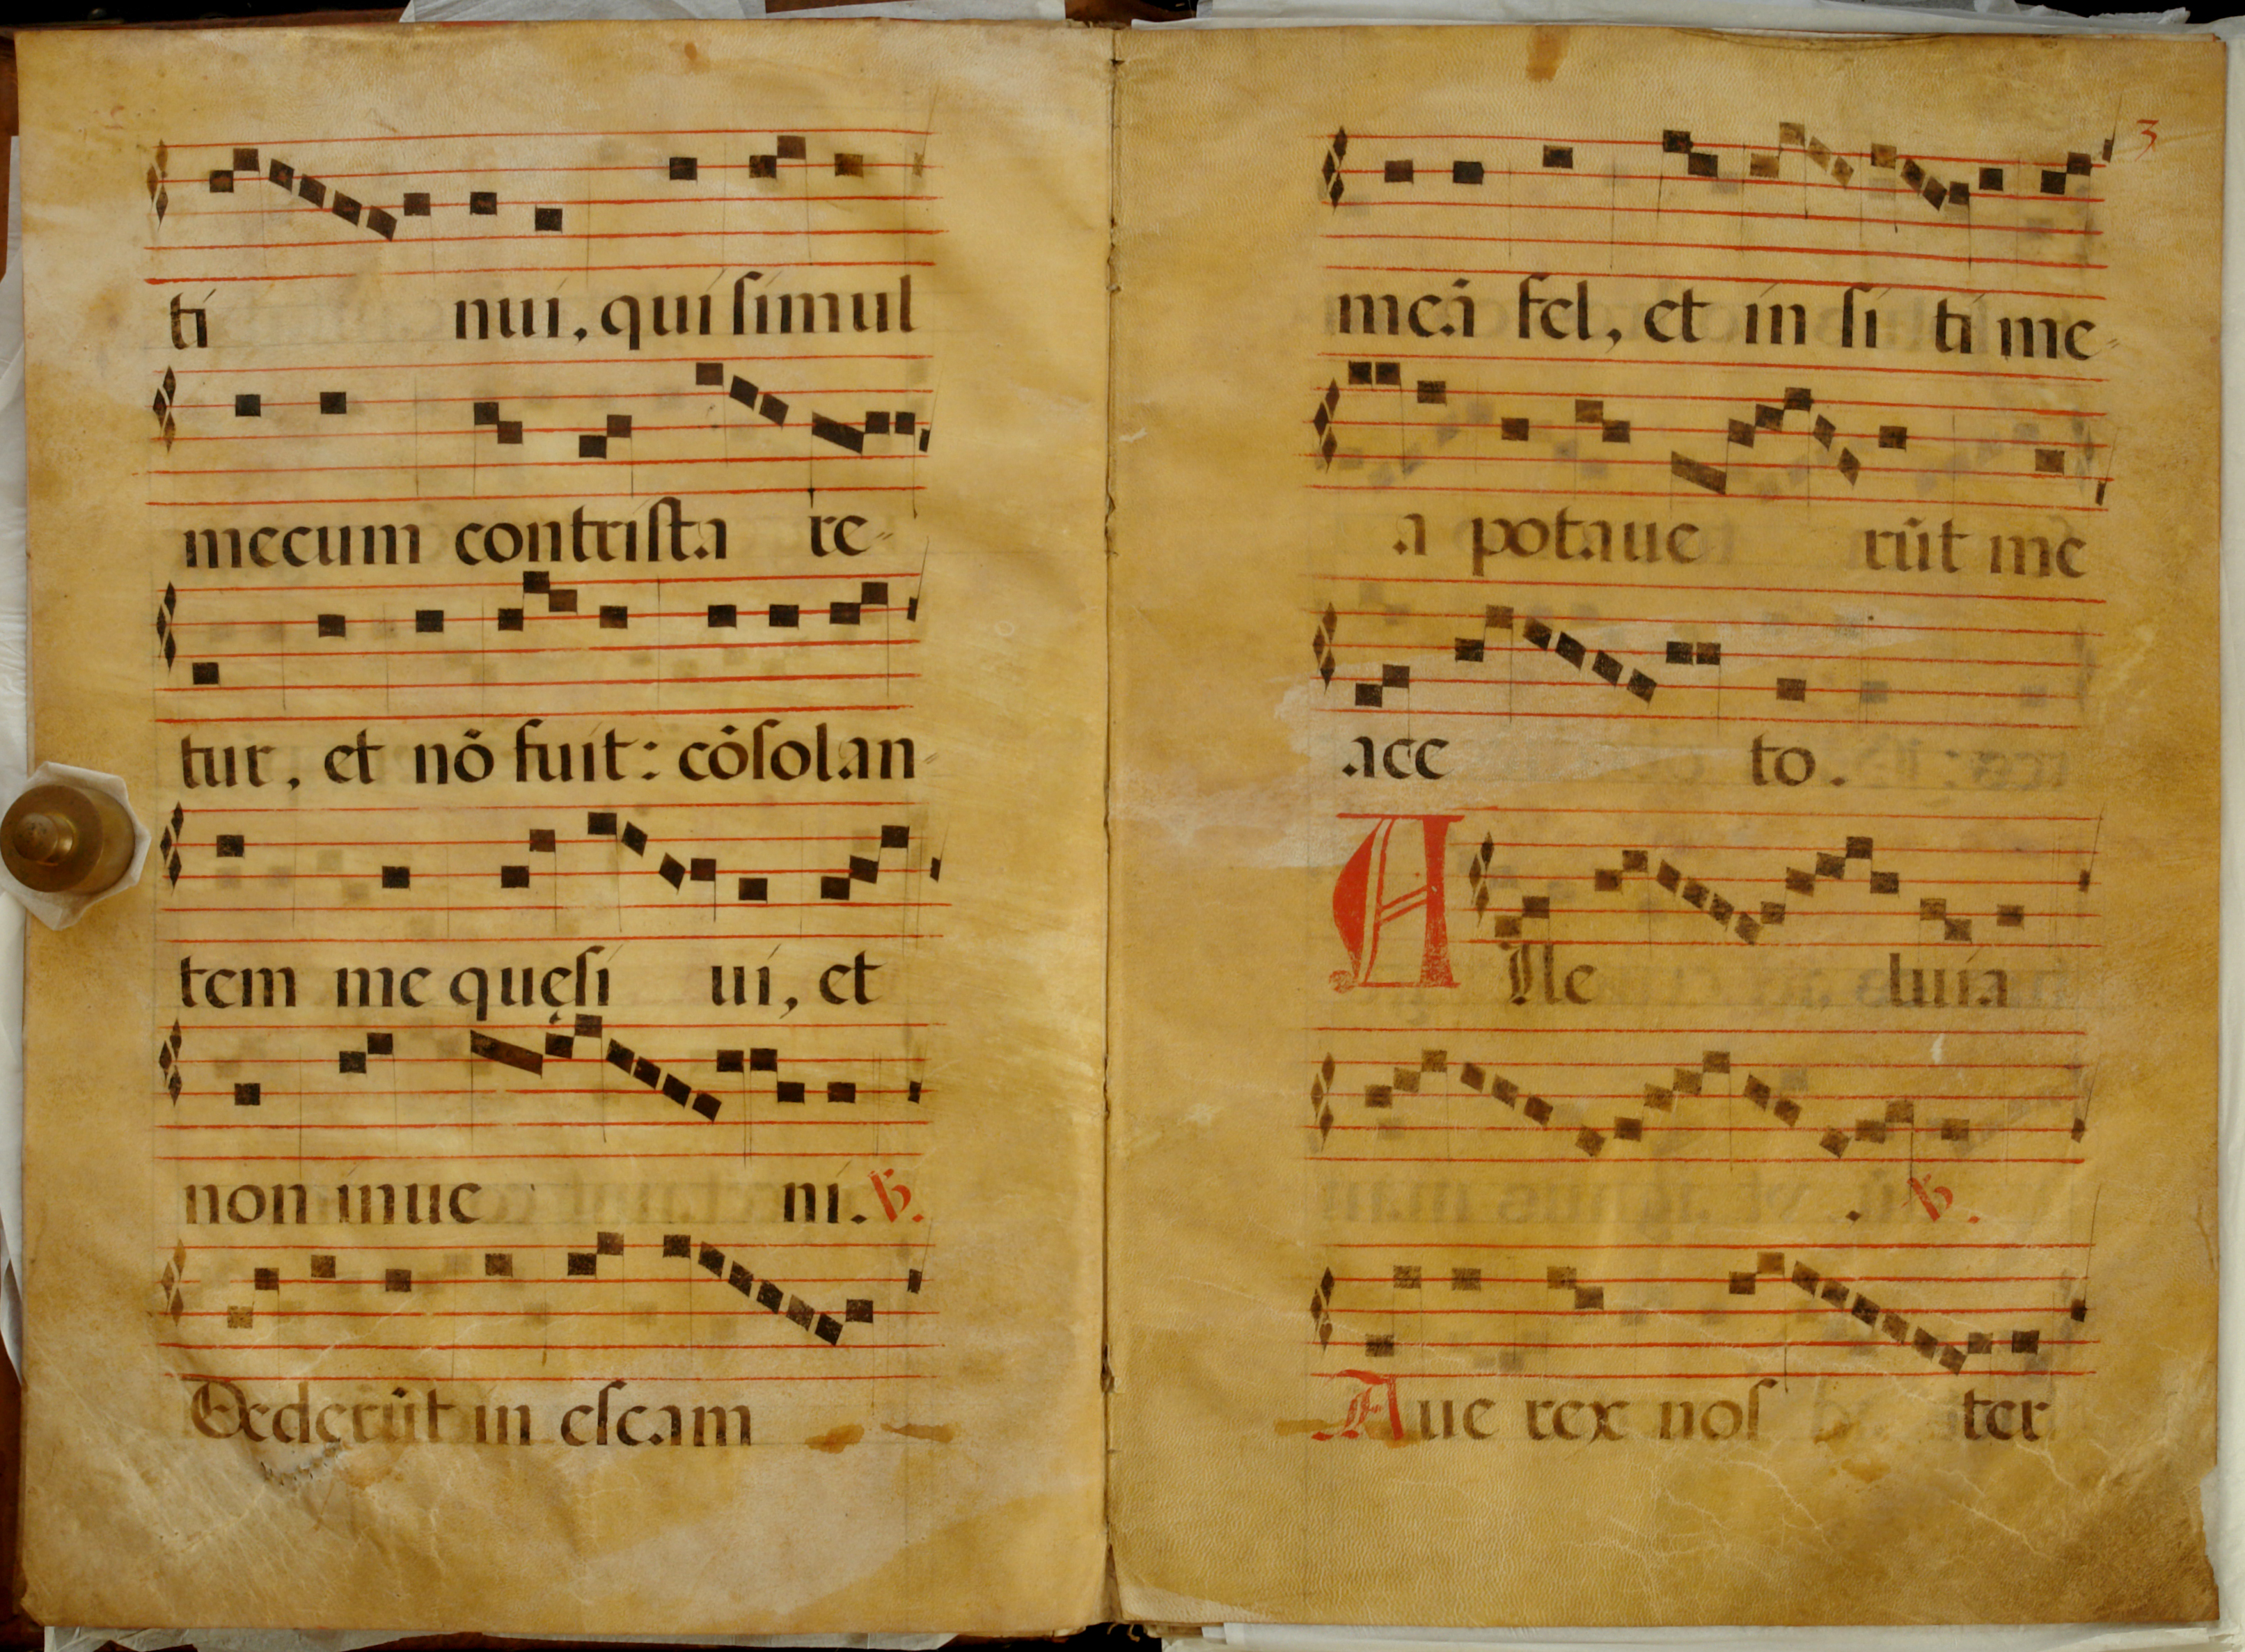 ti nui, qui simul
mecum contrista re-
tur, et nō fuit: cōsolan-
tem me quęsi ui, et
non inue ni. ℣.
Dederūt in escam
3
meā fel, et in si ti me-
a potaue rūt me
ace to.
Alle luia
. ℣.
Aue rex nos ter